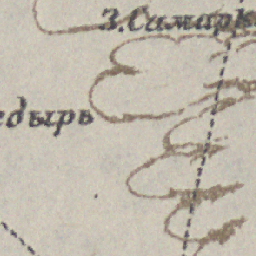 З.Самарк
едырь